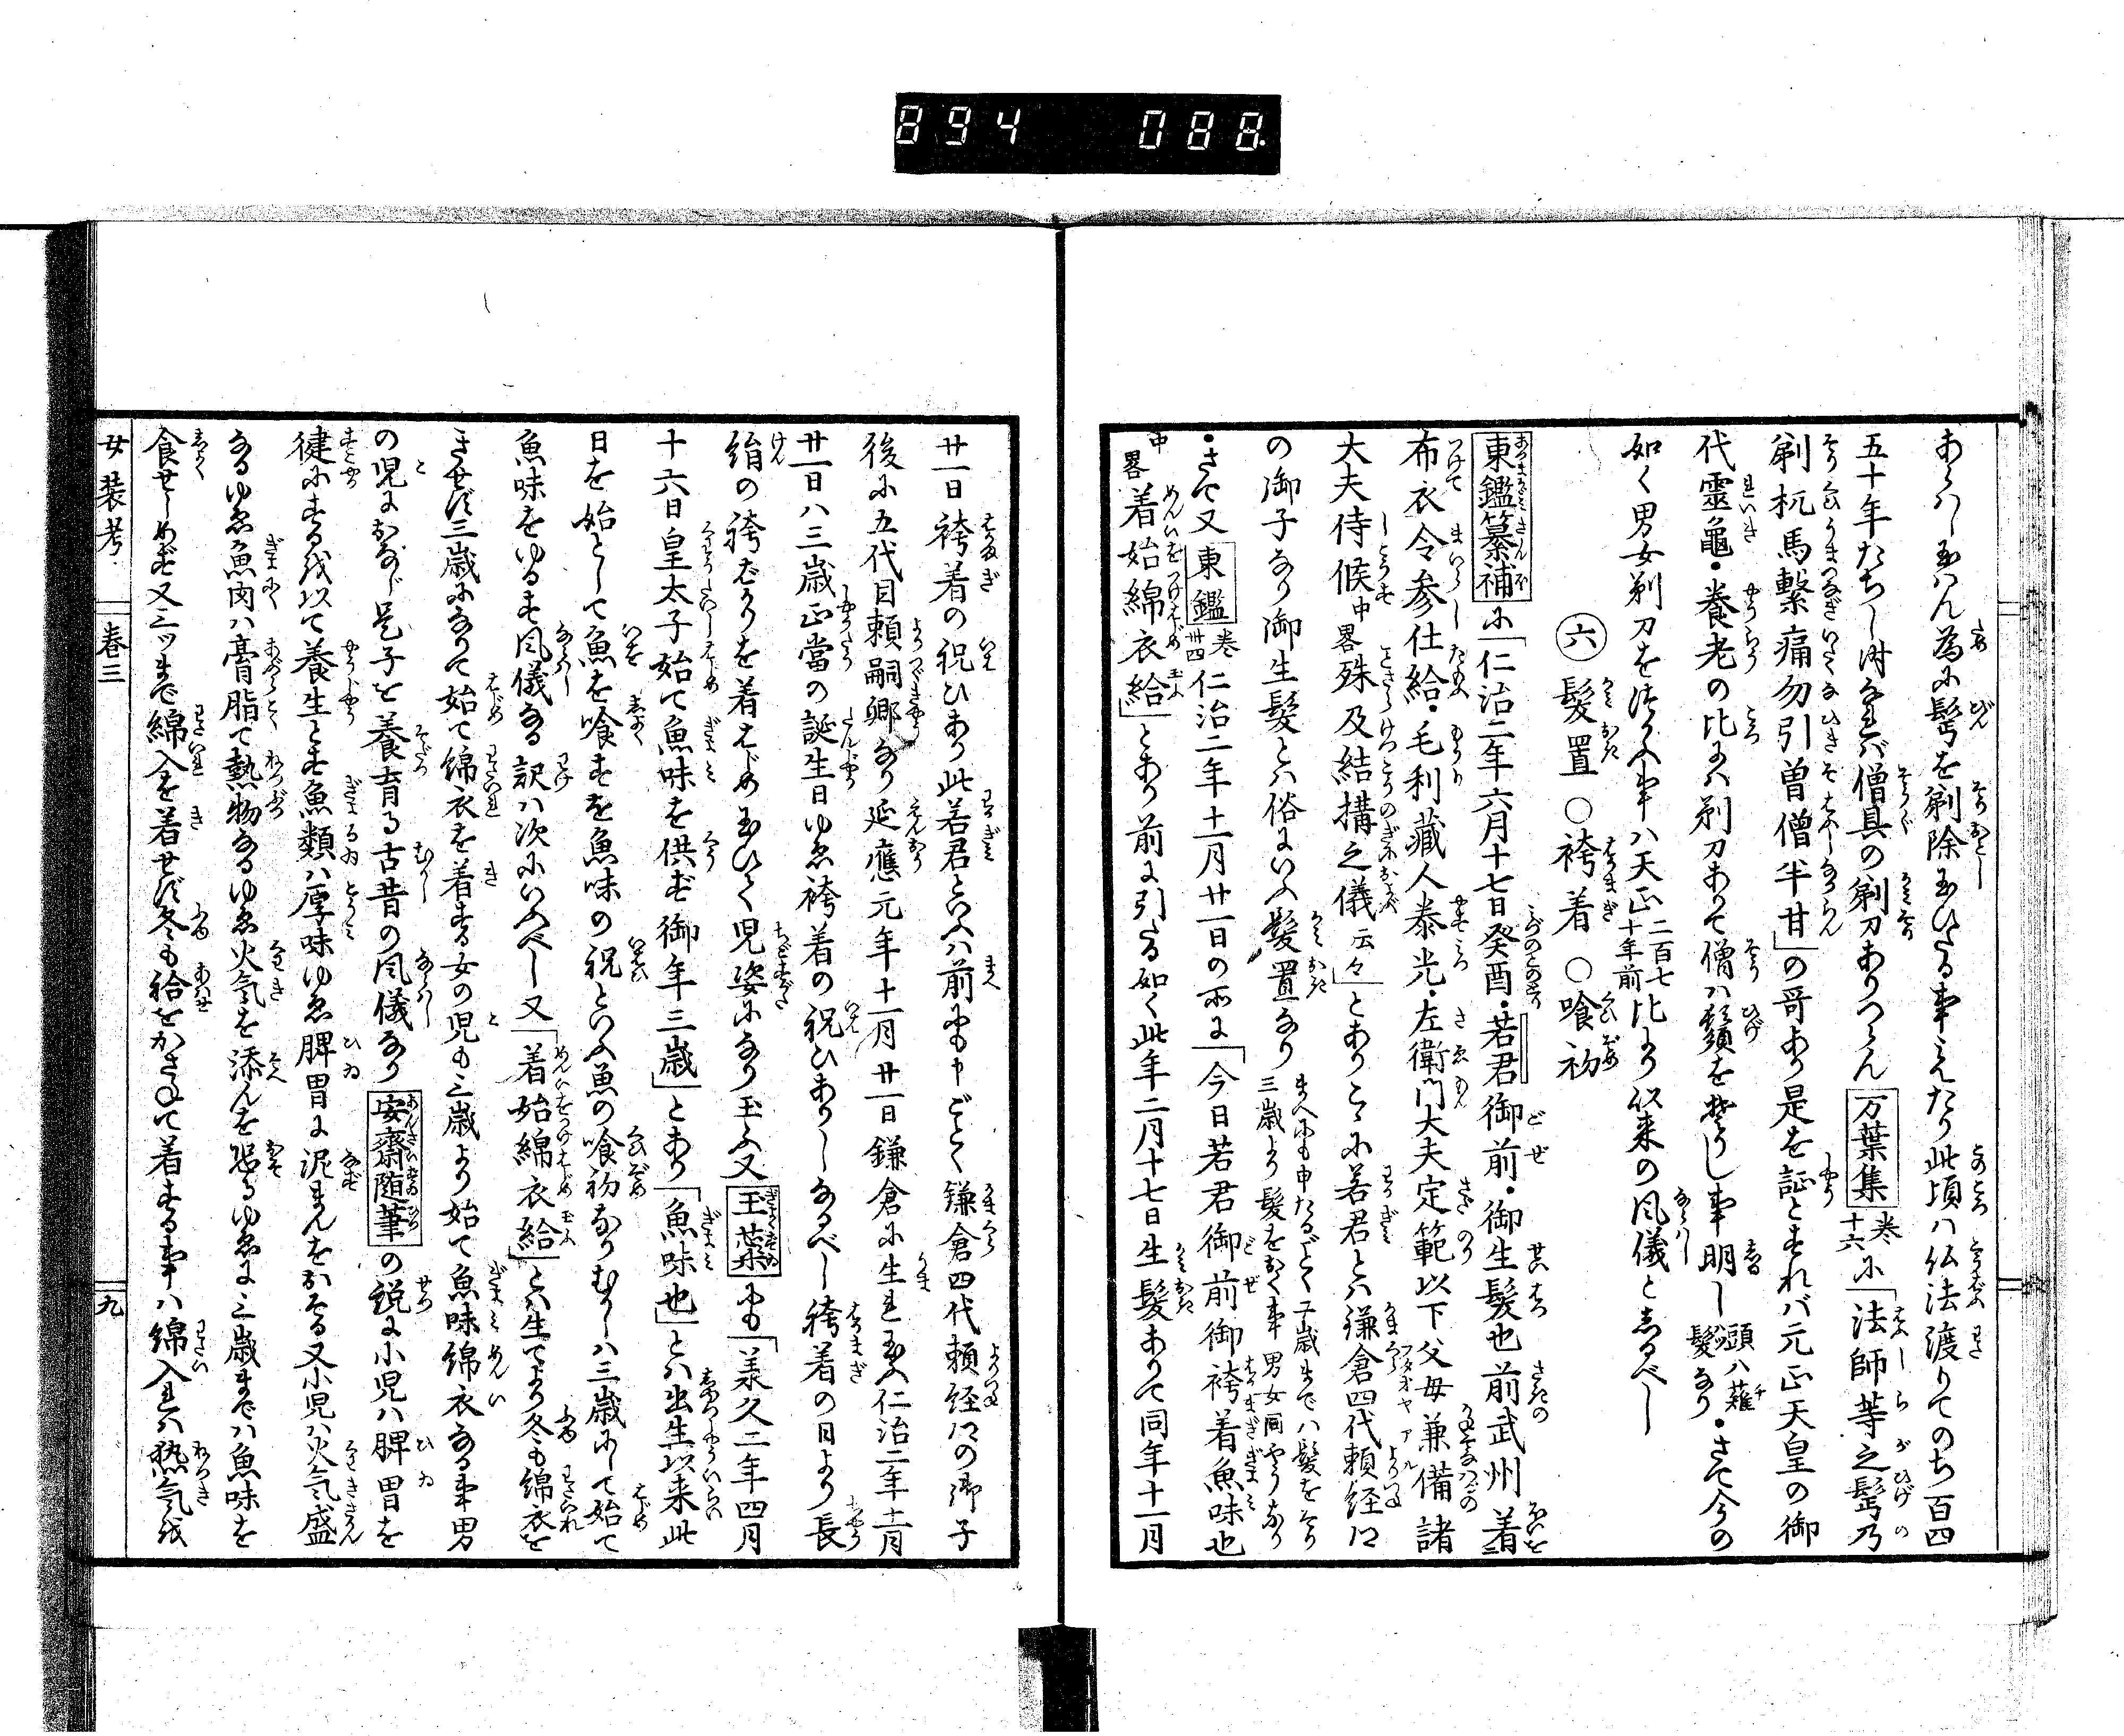 894 088.
あらハし玉はん為に髩を剃除玉ひたる事みえたり此頃ハ仏法渡りてのち百四
五十年たちし時なれバ僧具の剃刀ありつらん万葉集巻十六に「法師等之髩乃
剃杭馬繫痛勿引曽僧半甘」の哥あり是を証とすれバ元正天皇の御
代霊亀・養老の比にハ剃刀ありて僧ハ鬚をそりし事明し頭ハ薙髪なり・さて今の
如く男女剃刀をつかふ事ハ天正二百七十年前比より以来の風儀としるべし
㊅髪置○袴着○喰初
東鑑纂補に「仁治二年六月十七日癸酉・若君御前・御生髪也前武州着
布衣令参仕給・毛利蔵人泰光・左衛門大夫定範以下父母兼備諸
大夫侍候中畧殊及結構之儀云々」とありこゝに若君とハ鎌倉四代頼経公
の御子なり御生髪とハ俗にいふ髪置なりまへにも申たるごとく二歳までハ髪をそり三歳より髪をおく事男女同やうなり
・さて又東鑑巻卅四仁治二年十一月廿一日の所に「今日若君御前御袴着魚味也
中畧着始綿衣給」とあり前に引たる如く此年二月十七日生髪ありて同年十一月
廿一日袴着の祝ひあり此若君といふハ前にも申ごとく鎌倉四代頼経公の御子
後に五代目頼嗣卿なり延應元年十一月廿一日鎌倉に生れ玉ふ仁治二年十一月
廿一日ハ三歳正當の誕生日ゆゑ袴着の祝ひありしなるべし袴着の日より長
絹の袴ばかりを着そめ玉ひて児姿になり玉ふ又玉葉にも「羕久二年四月
十六日皇太子始て魚味を供ず御年三歳」とあり「魚味也」とハ出生以来此
日を始として魚を喰すを魚味の祝といふ魚の喰初なりむかしハ三歳にて始て
魚味をゆるす風儀なる訳ハ次にいふべし又「着始綿衣給」とハ生てより冬も綿衣を
きせず三歳になりて始て綿衣を着する女の児も三歳より始て魚味綿衣なる事男
の児におなじ是子を養育る古昔の風儀なり安齋随筆の説に小児ハ脾胃を
健にするを以て養生とす魚類ハ厚味ゆゑ脾胃に泥まんをおそる又小児ハ火気盛
なるゆゑ魚肉ハ膏脂て熱物なるゆゑ火気を添んを恐るゆゑに三歳までハ魚味を
食せしめず又三ツまで綿入を着せず冬も袷をかさねて着する事ハ綿入れハ熱気を
女装考 巻三 九